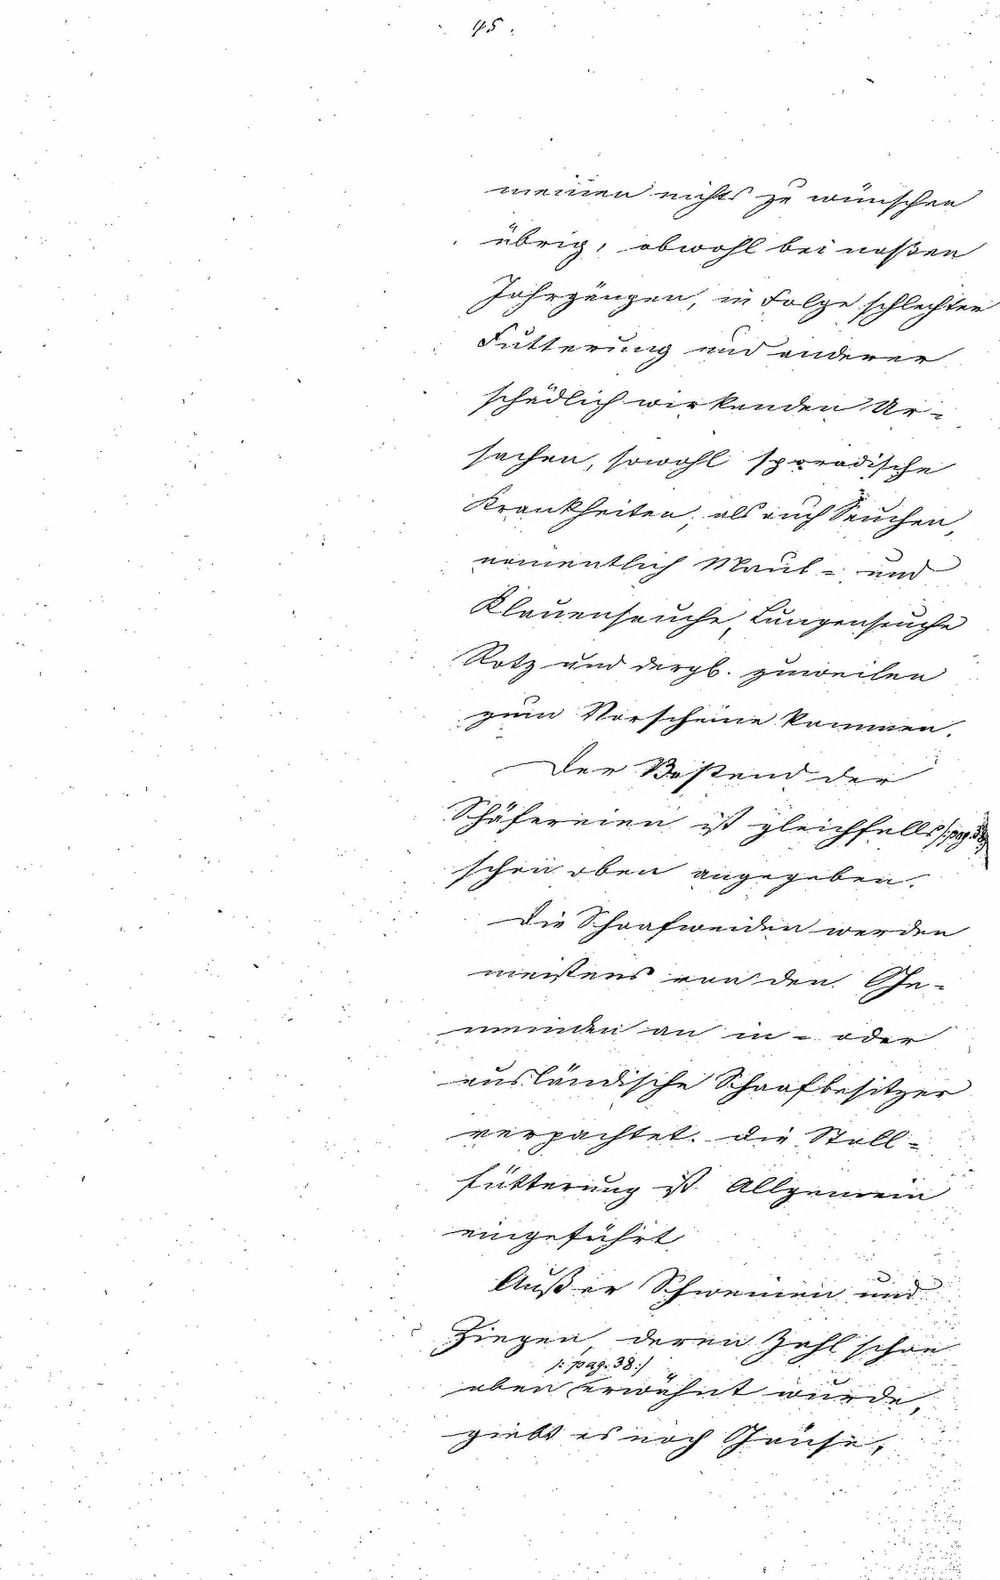 45.
meinen nichts zu wünschen
übrig, obwohl bei naßen
Jahrgängen, in Folge schlechter
Futterung und anderer
schädlich wirkenden Ur-
sachen, sowohl sporadische
Krankheiten, als auch Seuchen,
namentlich Maul- und
Klauenseuche, Lungenseuche
Rotz und dergl. zuweilen
zum Vorscheine kommen.
Der Bestand der
Schäfereien ist gleichfalls /: pag. 38 :/
schon oben angegeben.
Die Schaafweiden werden
meistens von den Ge-
meinden an in- oder
ausländische Schaafbesitzer
verpachtet. Die Stall-
fütterung ist Allgemein
eingeführt
Außer Schweinen und
Ziegen, deren Zahl schon
/: pag. 38 :/
oben erwähnt wurde,
giebt es noch Gänse,